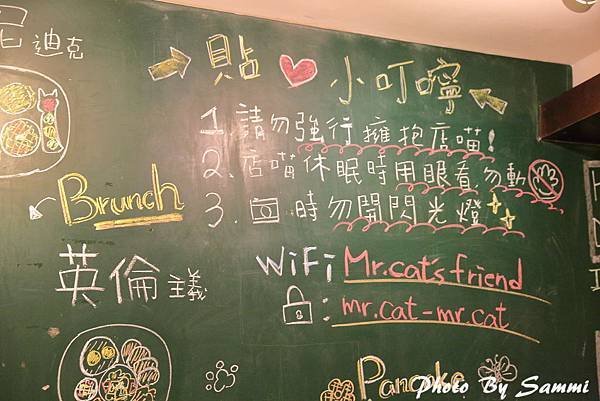 尼迪克
貼♥小叮嚀
1. 請勿強行擁抱店喵!
2. 店喵休眠時用眼看勿動
3. 時勿開閃光燈
Brunch
英倫主義
WiFi Mr.cat's friend
: mr.cat-mr.cat
Pancake
Photo By Sammi